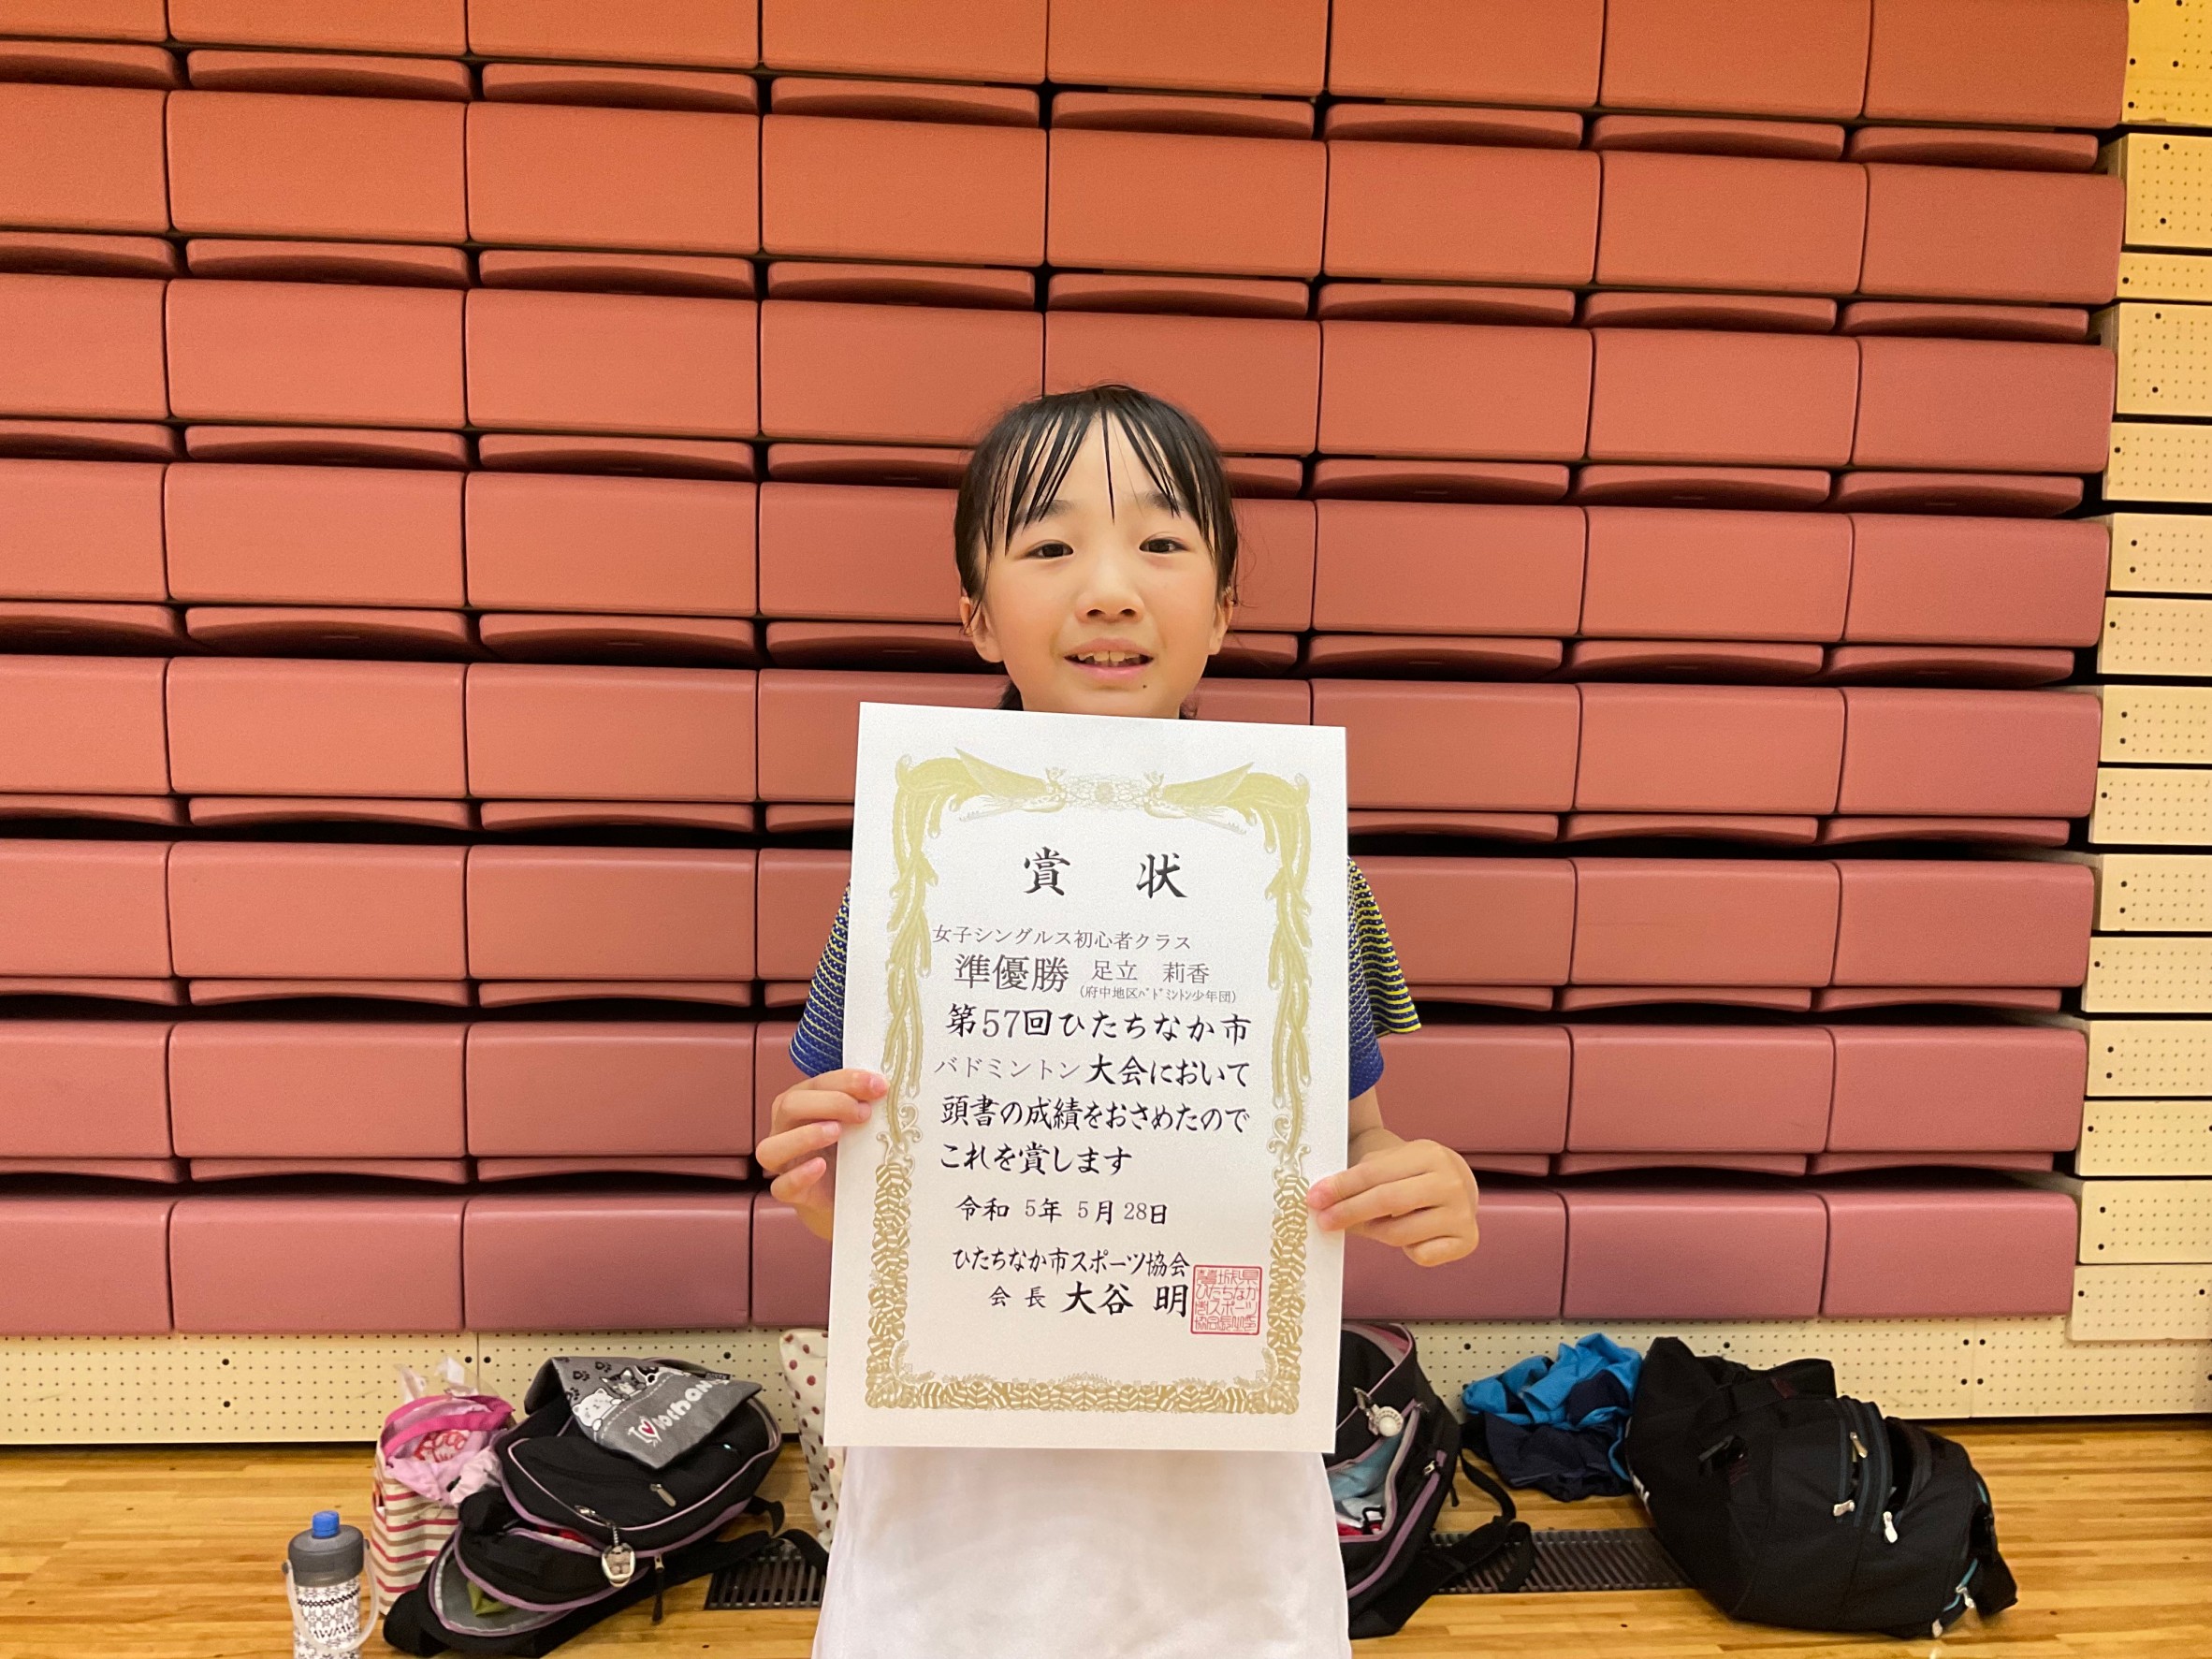 賞 状
女子シングルス初心者クラス
準優勝 足立 莉香
(府中地区バドミントン少年団)
第57回ひたちなか市
バドミントン大会において
頭書の成績をおさめたので
これを賞します
令和 5年 5月 28日
ひたちなか市スポーツ協会
会長 大谷 明